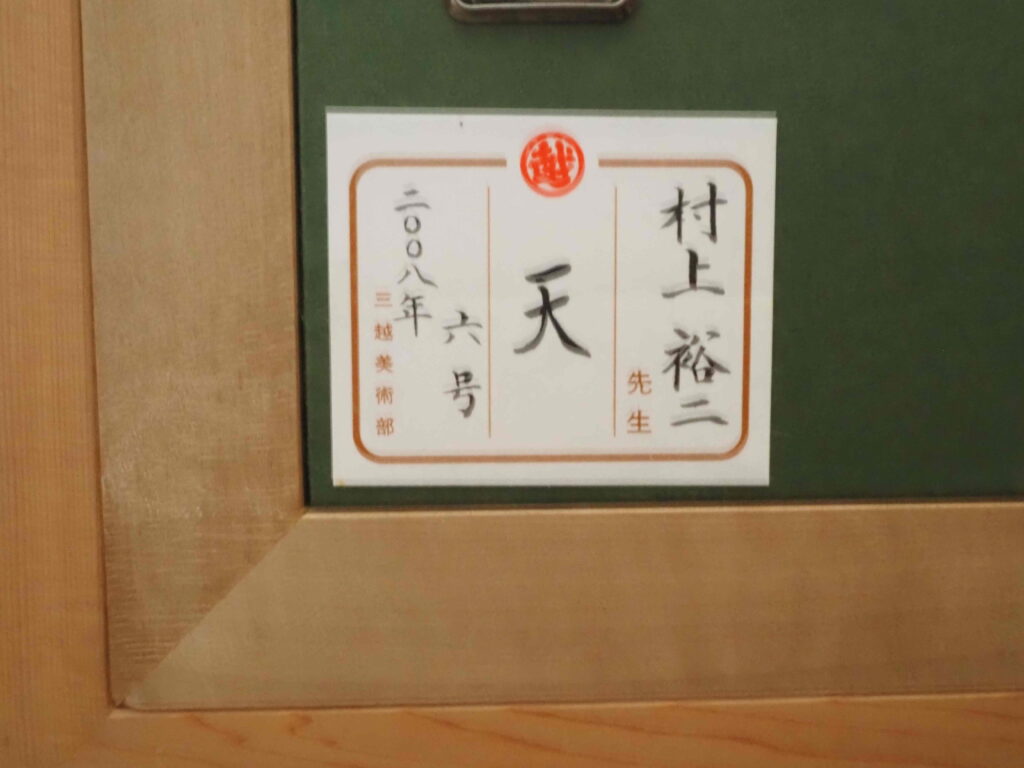 越
村上裕二
先生
天
六号
二〇〇八年
三越美術部